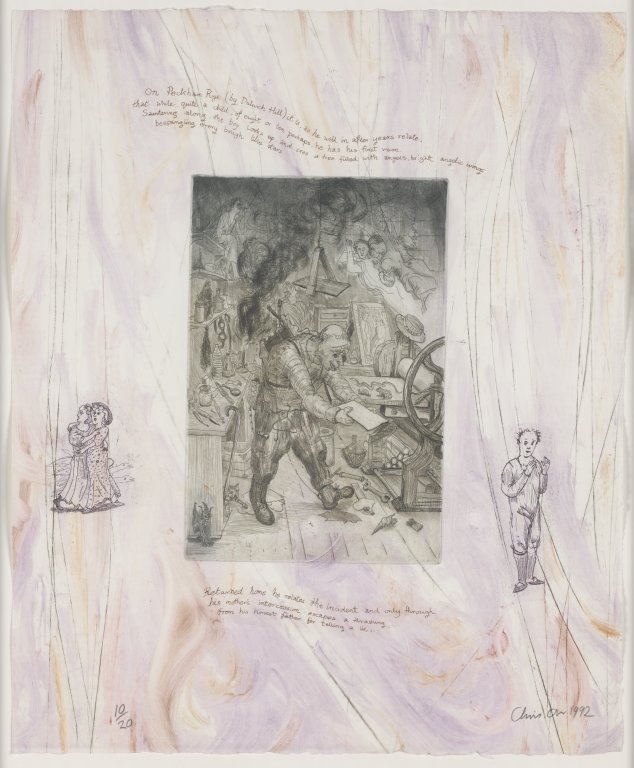 On Peckham Rye (by Dulwich Hill) it is, as he will in after years relate,
that while quite a child, of eight or ten perhaps he has his first vision.
Sauntering along, the boy looks up and sees a tree filled with angels, bright angelic wings
bespangling every bough like stars
Returned home he relates the incident and only through
his mother's intercession escapes a thrashing
from his honest father for telling a lie..
10/20
Chris Orr 1992